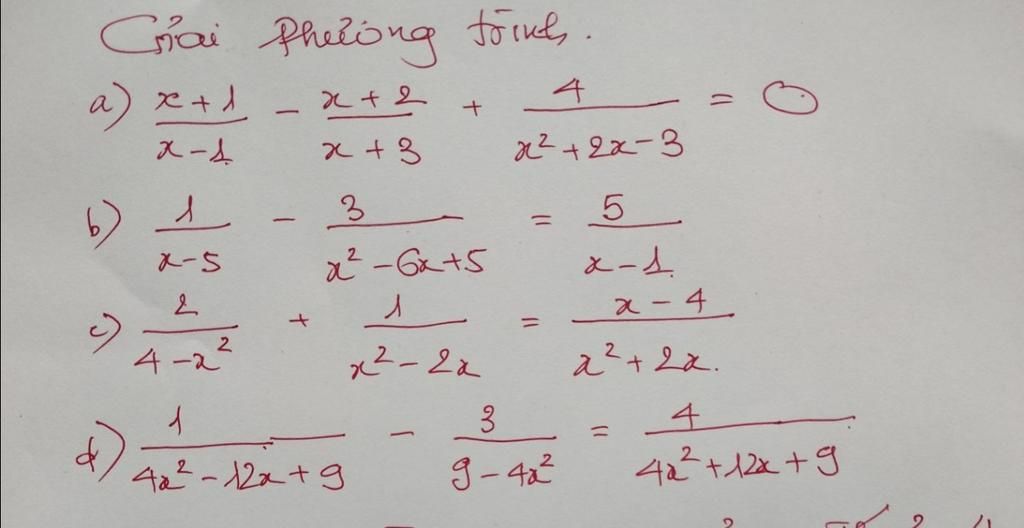 Giải phương trình.
a) \frac{x+1}{x-1} - \frac{x+2}{x+3} + \frac{4}{x^2+2x-3} = 0
b) \frac{1}{x-5} - \frac{3}{x^2-6x+5} = \frac{5}{x-1}
c) \frac{2}{4-x^2} + \frac{1}{x^2-2x} = \frac{x-4}{x^2+2x}.
d) \frac{1}{4x^2-12x+9} - \frac{3}{9-4x^2} = \frac{4}{4x^2+12x+9}